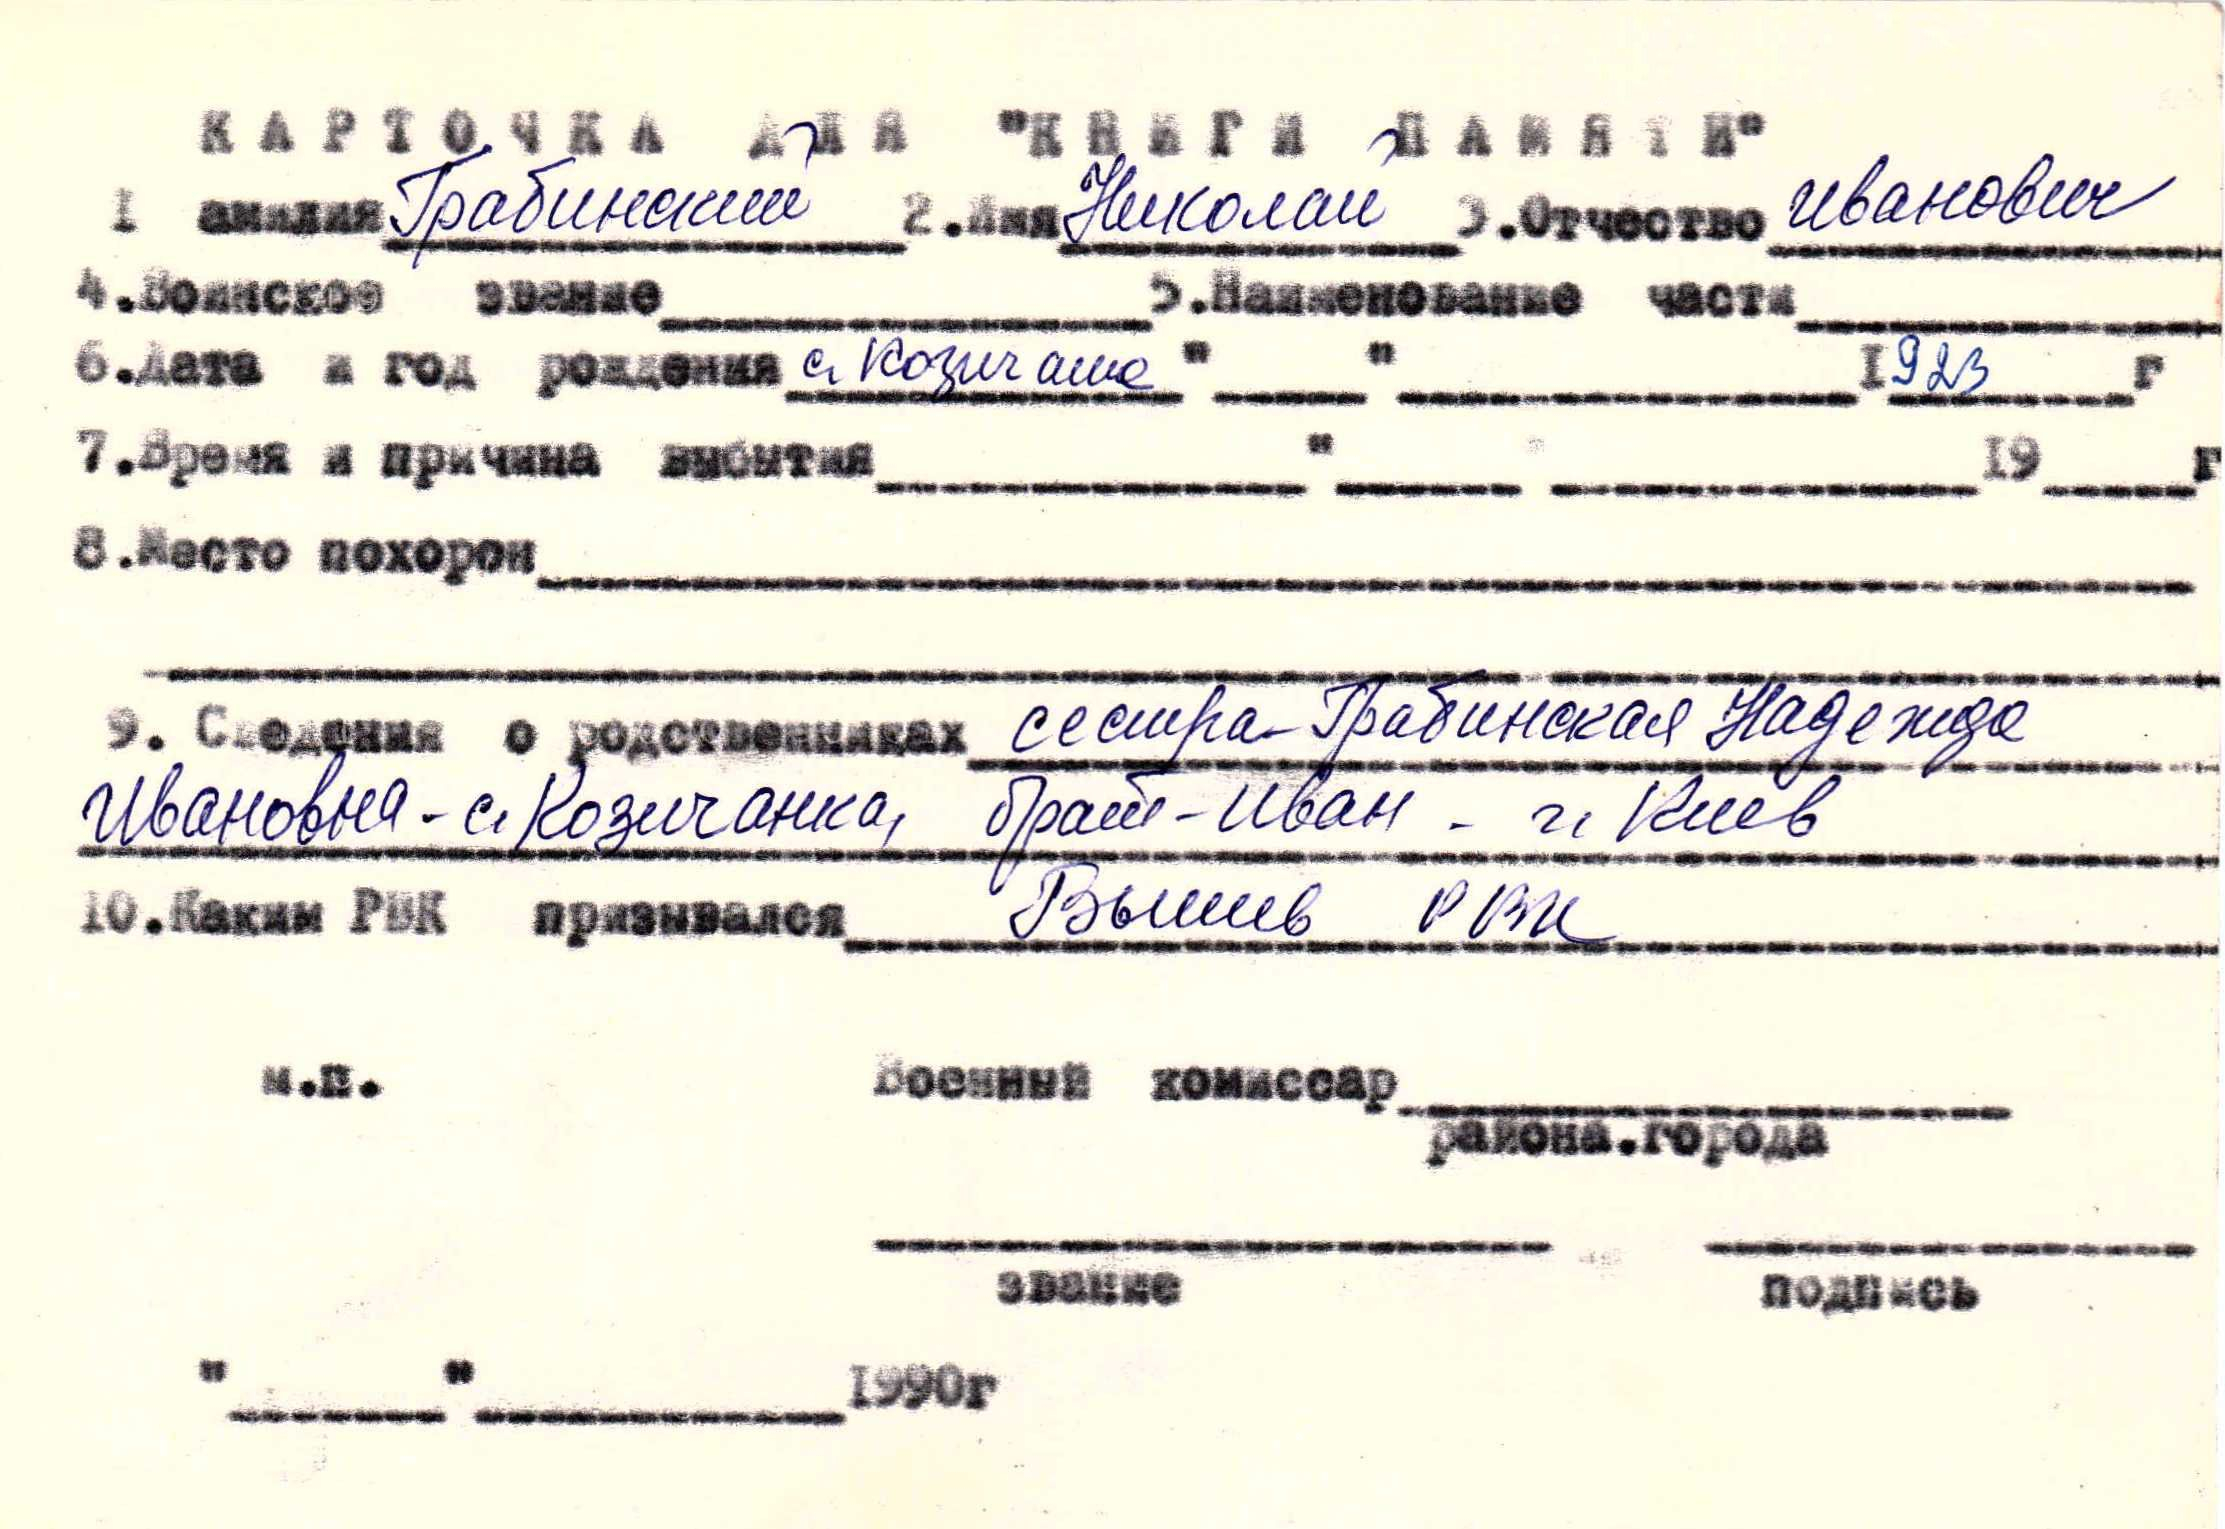 КАРТОЧКА ДЛЯ "КНИГИ ПАМЯТИ"
1 амилия Грабинский 2.Имя Николай 3.Отчество Иванович
4.Воинское звание 5.Наименование части
6.Дата и год рождения с. Козичанка " " 1923 г
7.Время и причина выбытия " 19 г
8.Место похорон
9. Сведения о родственниках сестра - Грабинская Надежда
Ивановна - с. Козичанка, брат - Иван - г. Киев
10.Каким РВК призывался Вышев РВК
м.п. Военный комиссар
района.города
звание подпись
" " 1990г